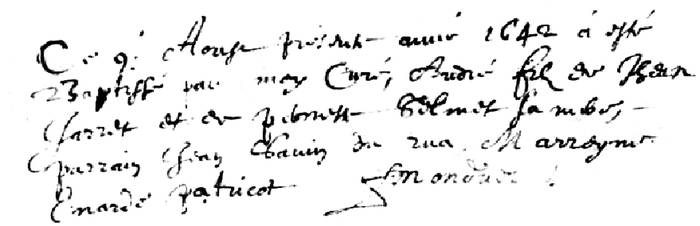 Ce 9: Aoust presente année 1642 à esté
Baptissé par moy Curé, André filz de Jhean
Charret et de pierrette helmet sa mere,
parrain Jhean Chauin du rua, Marreyne
Emarde patricot